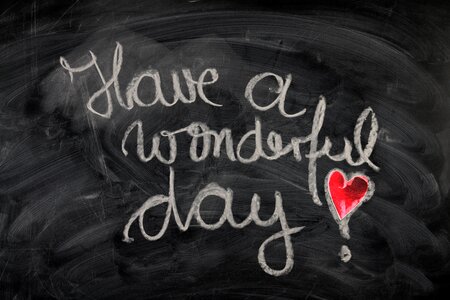 Have a
wonderful
day!